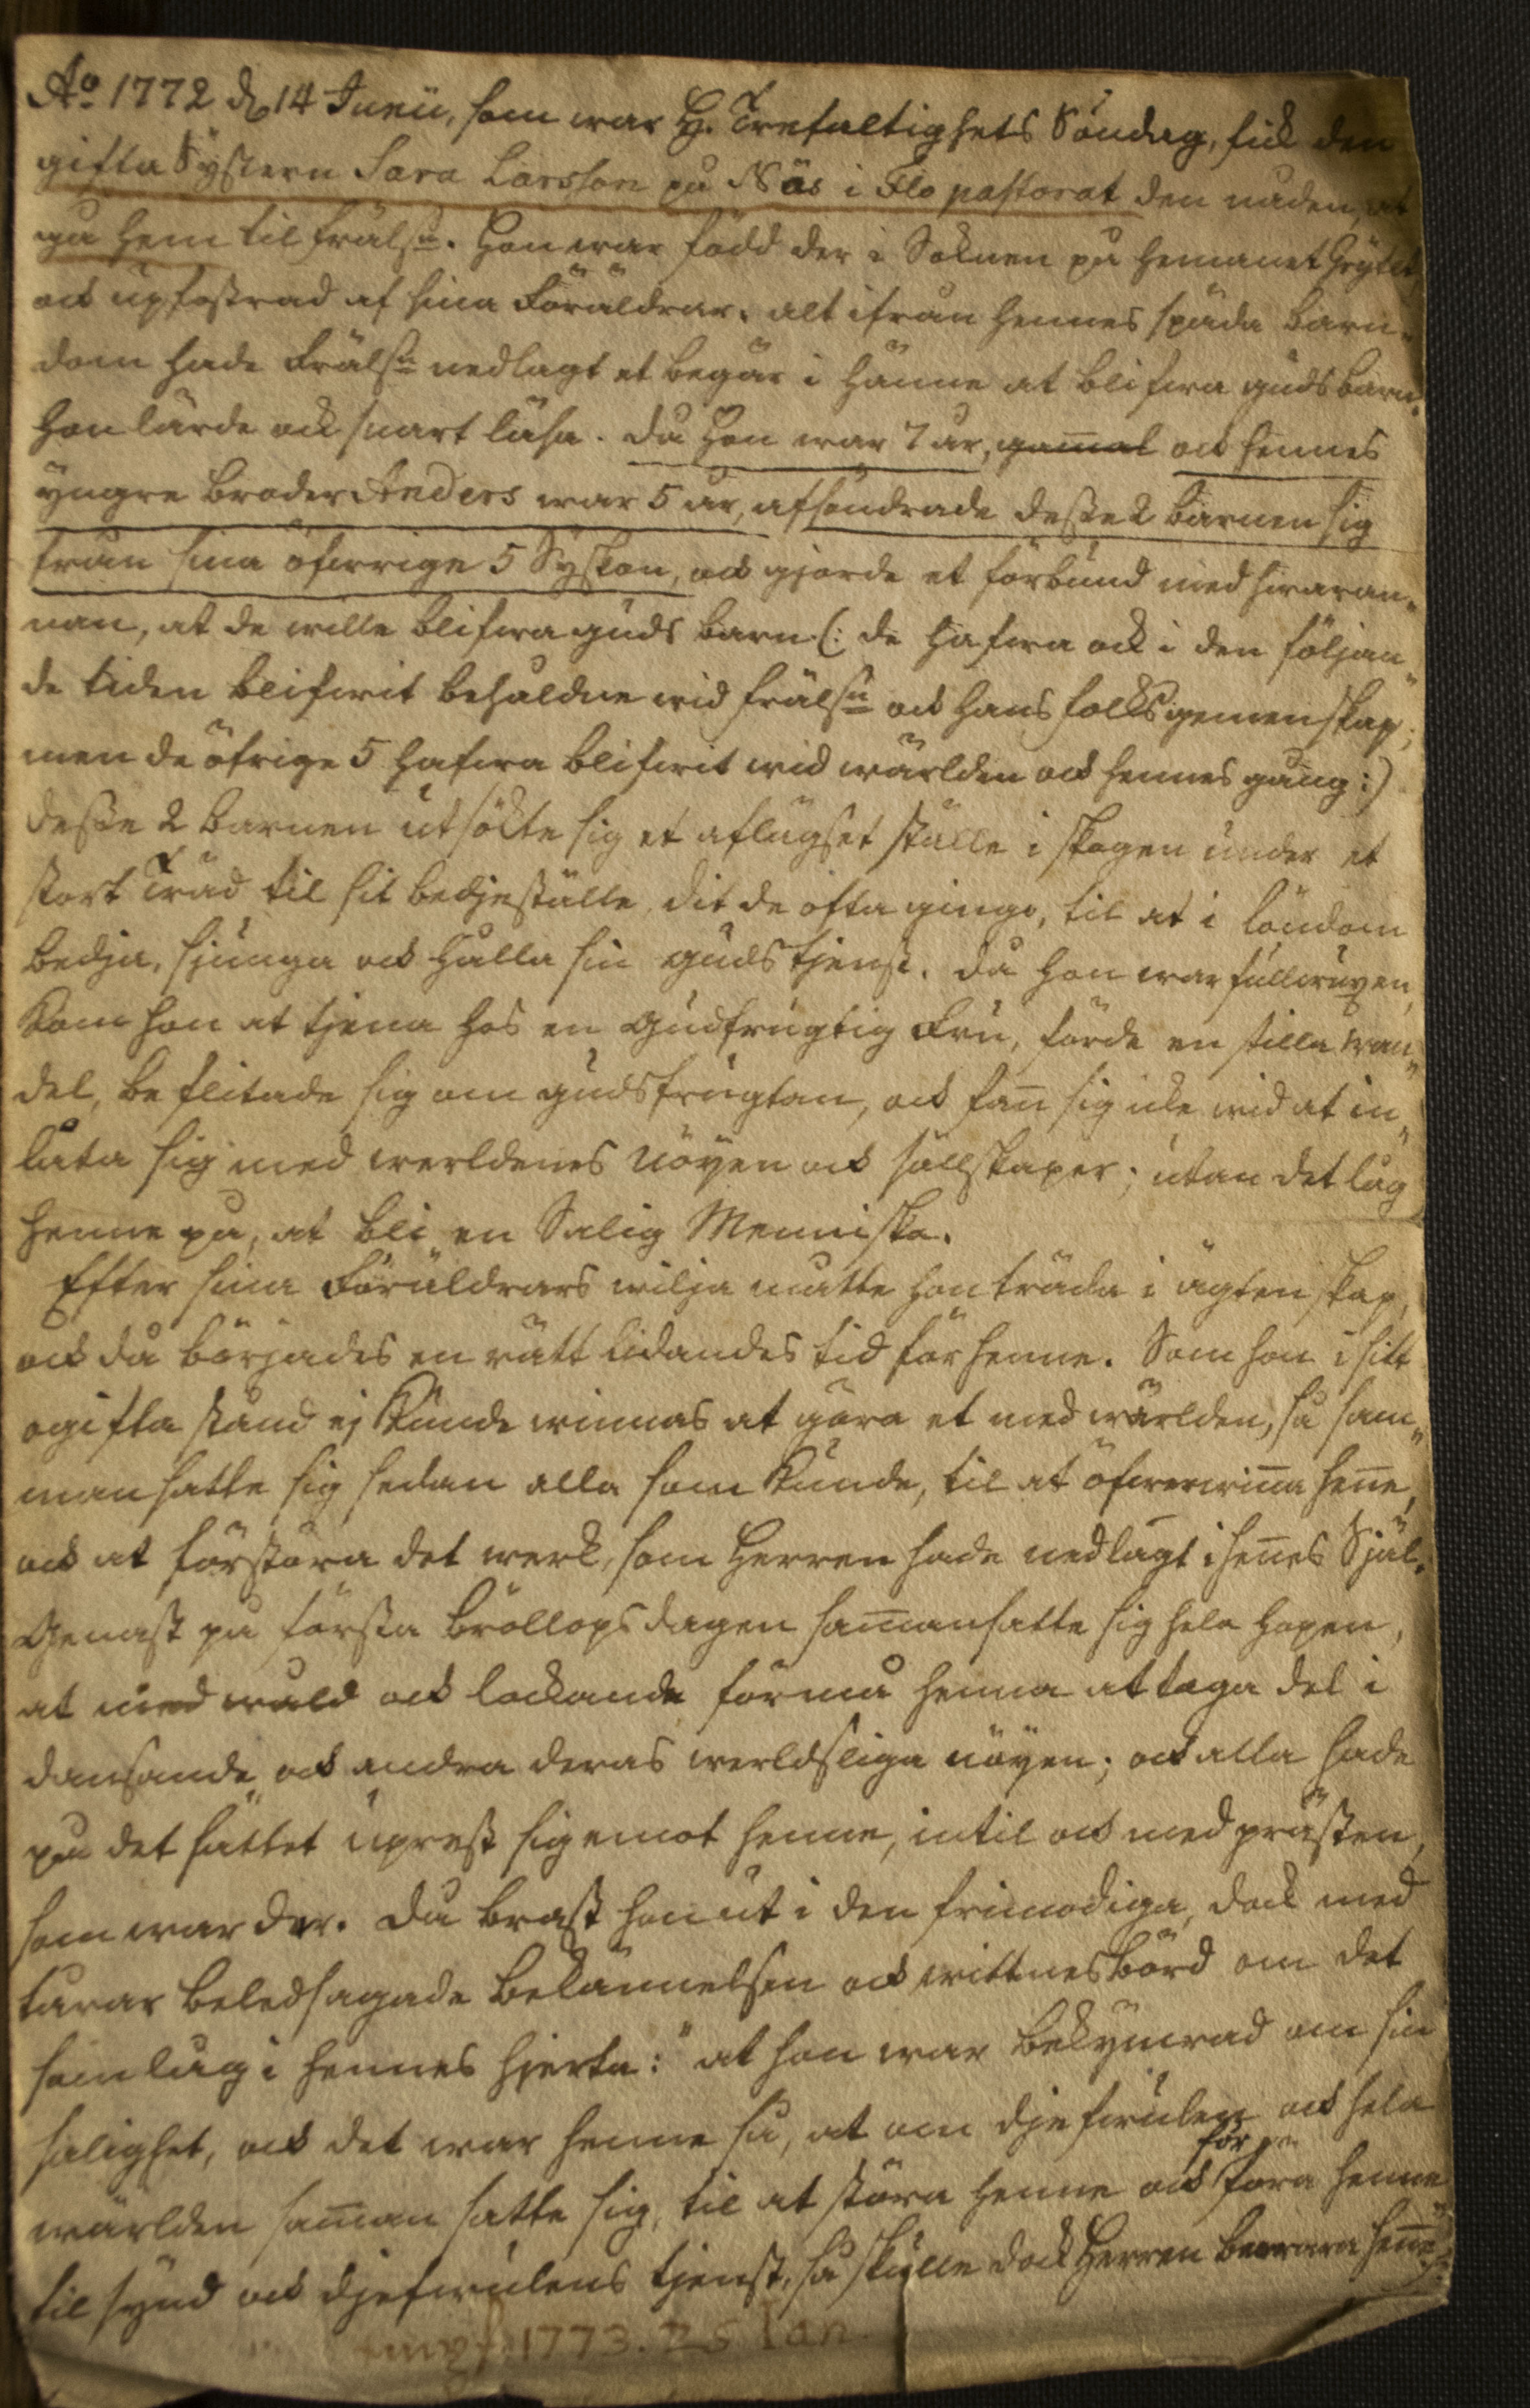 Ao 1772 d 14 Junii, som war H. Trefaltighets Söndag, fick den
gifta Systern Sara Larsson på Näs i Flo pastorat den nåden, at
gå hem til Frälsn. Hon war född der i Soknen på hemanet Grytet
ock upfostrad af sina Föräldrar. alt ifrån hennes späda barn-
dom hade Frälsn nedlagt et begär i hänne at blifwa guds barn.
Hon lärde ock snart läsa. Då Hon war 7 år, gam̄al ock hennes
yngre broder Anders war 5 år, afsöndrade desse 2 barnen sig
från sina öfwrige 5 Syskon, ock gjorde et förbund med hwaran-
nan, at de wille blifwa guds barn (: de hafwa ock i den följan-
de tiden blifwit behåldne wid Frälsn ock hans folks gemenskap;
men de öfrige 5 hafwa blifwit wid wärlden ock hennes gång:)
desse 2 barnen utsökte sig et aflägset ställe i skogen under et
stort Träd til sit bedjeställe, dit de ofta gingo, til at i löndom
bedja, sjunga ock hålla sin gudstjenst. då hon war fullwuxen,
kom hon at tjena hos en Gudfrugtig Fru, förde en stilla wan-
del, beflitade sig om gudsfrugtan, ock fan̄ sig icke wid at in-
låta sig med werldenes nöyen ock sällskaper; utan det låg
henne på, at bli en Salig Menniska.
Efter sina Föräldrars wilja måtte hon träda i ägtenskap,
ock då börjades en rätt lidandes tid för henne. Som hon i sitt
ogifta stånd ej kunde winnas at göra et med wärlden, så sam-
mansatte sig sedan alla som kunde, til at öfwerwin̄a hen̄e,
ock at förstöra det werk, som Herren hade nedlagt i hen̄es Själ.
Genast på första bröllopsdagen sam̄ansatte sig hela hopen,
at med wåld ock lockande förmå henna at taga del i
dansande ock andra deras werldsliga nöyen; ock alla hade
på det sättet uprest sig emot henne, intil ock med prästen,
som war der. Då brast hon ut i den frimodiga, dock med
tårar beledsagade bekännelsen ock wittnesbörd om det
som låg i hennes hjerta: "at hon war bekymrad om sin
salighet, ock det war henne så, at om djefwulen ock hela
wärlden sam̄an satte sig, til at störa henne ock för föra henne
til synd ock djefwulens tjenst, så skulle dock Herren bewara hen̄e
1773. 25 Jan